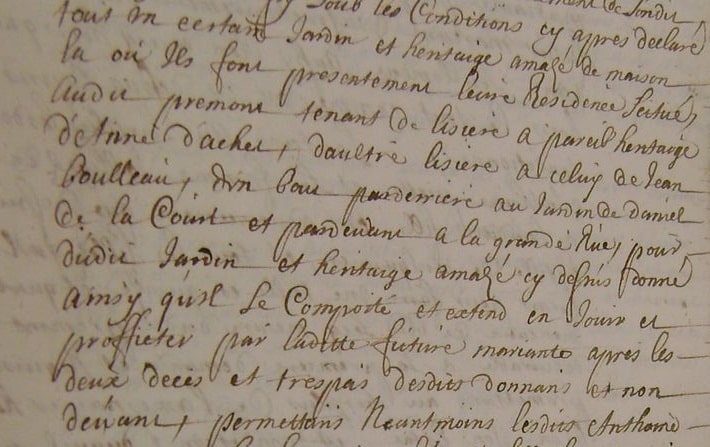 soub les Conditions cy apres declaré
tout un certain Jardin et heritaige amazé de maison
la ou Ils font presentement leure Residence scitué
audit premont tenant de lisiere a pareil heritaige
d'Anne d'achet, d'aultre lisiere a celuy de Jean
boulleau, d'un bout parderriere au Jardin de daniel
De la Court et pardevant a la grande Rue, pour
dudit Jardin et heritaige amazé cy dessus donné
ainsy qu'il Se Comporte et extend en Jouir et
proffieter par laditte future mariante apres les
deux deces et trespas desdits donnans et non
devant, permettans Neantmoins lesdits Anthoine